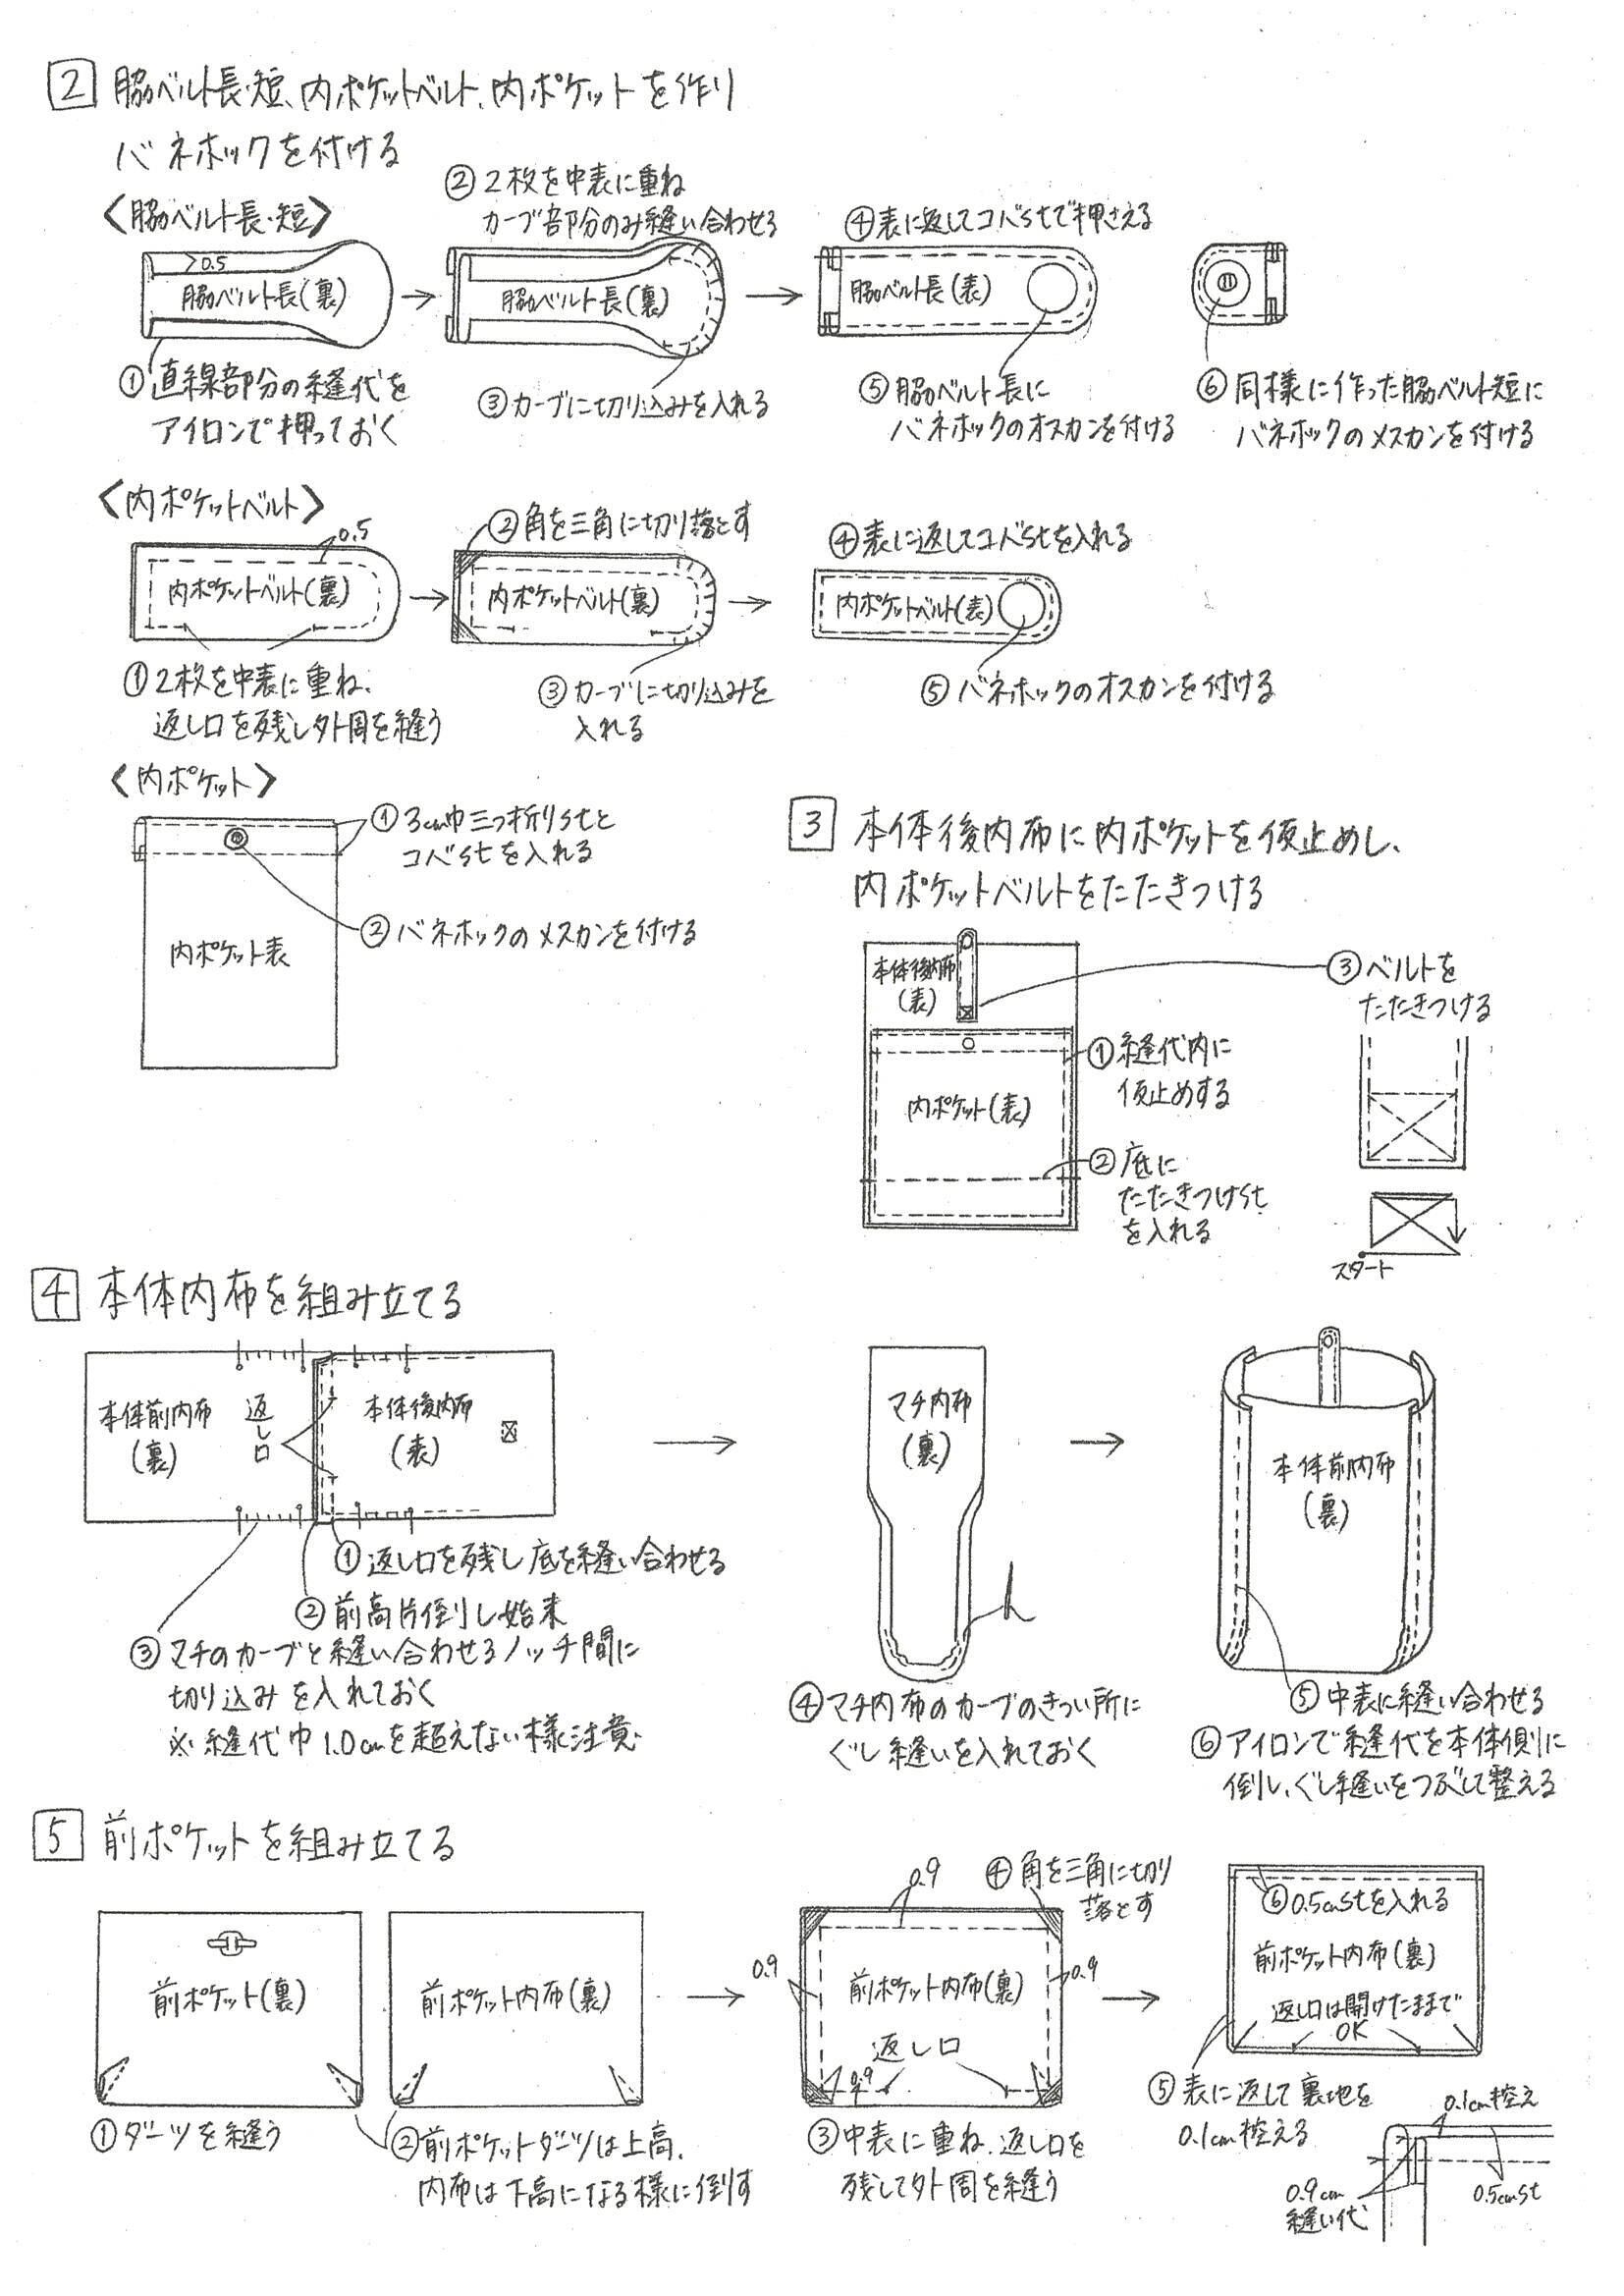 2 脇ベルト長・短、内ポケットベルト、内ポケットを作り
バネホックを付ける
〈脇ベルト長・短〉
0.5
脇ベルト長(裏)
①直線部分の縫代を
アイロンで押っておく
②2枚を中表に重ね
カーブ部分のみ縫い合わせる
脇ベルト長(裏)
③カーブに切り込みを入れる
④表に返してコバstで押さえる
脇ベルト長(表)
⑤脇ベルト長に
バネホックのオスカンを付ける
⑥同様に作った脇ベルト短に
バネホックのメスカンを付ける
〈内ポケットベルト〉
0.5
内ポケットベルト(裏)
①2枚を中表に重ね、
返し口を残し外周を縫う
②角を三角に切り落とす
内ポケットベルト(裏)
③カーブに切り込みを
入れる
④表に返してコバstを入れる
内ポケットベルト(表)
⑤バネホックのオスカンを付ける
〈内ポケット〉
①3cm巾三つ折りstと
コバstを入れる
②バネホックのメスカンを付ける
内ポケット表
3 本体後内布に内ポケットを仮止めし、
内ポケットベルトをたたきつける
本体後内布
(表)
③ベルトを
たたきつける
①縫代内に
仮止めする
内ポケット(表)
②底に
たたきつけst
を入れる
スタート
4 本体内布を組み立てる
本体前内布
(裏)
返し口
本体後内布
(表)
①返し口を残し底を縫い合わせる
②前高片倒りし始末
③マチのカーブと縫い合わせるノッチ間に
切り込みを入れておく
※縫代巾1.0cmを超えない様注意
マチ内布
(裏)
④マチ内布のカーブのきつい所に
ぐし縫いを入れておく
本体前内布
(裏)
⑤中表に縫い合わせる
⑥アイロンで縫代を本体側に
倒し、ぐし縫いをつぶして整える
5 前ポケットを組み立てる
前ポケット(裏)
①ダーツを縫う
前ポケット内布(裏)
②前ポケットダーツは上高、
内布は下高になる様に倒す
0.9
④角を三角に切り
落とす
0.9
前ポケット内布(裏)
0.9
返し口
0.9
③中表に重ね、返し口を
残して外周を縫う
⑥0.5cmstを入れる
前ポケット内布(裏)
返し口は開けたままで
OK
⑤表に返して裏地を
0.1cm控える
0.1cm控え
0.9cm
縫い代
0.5cmst